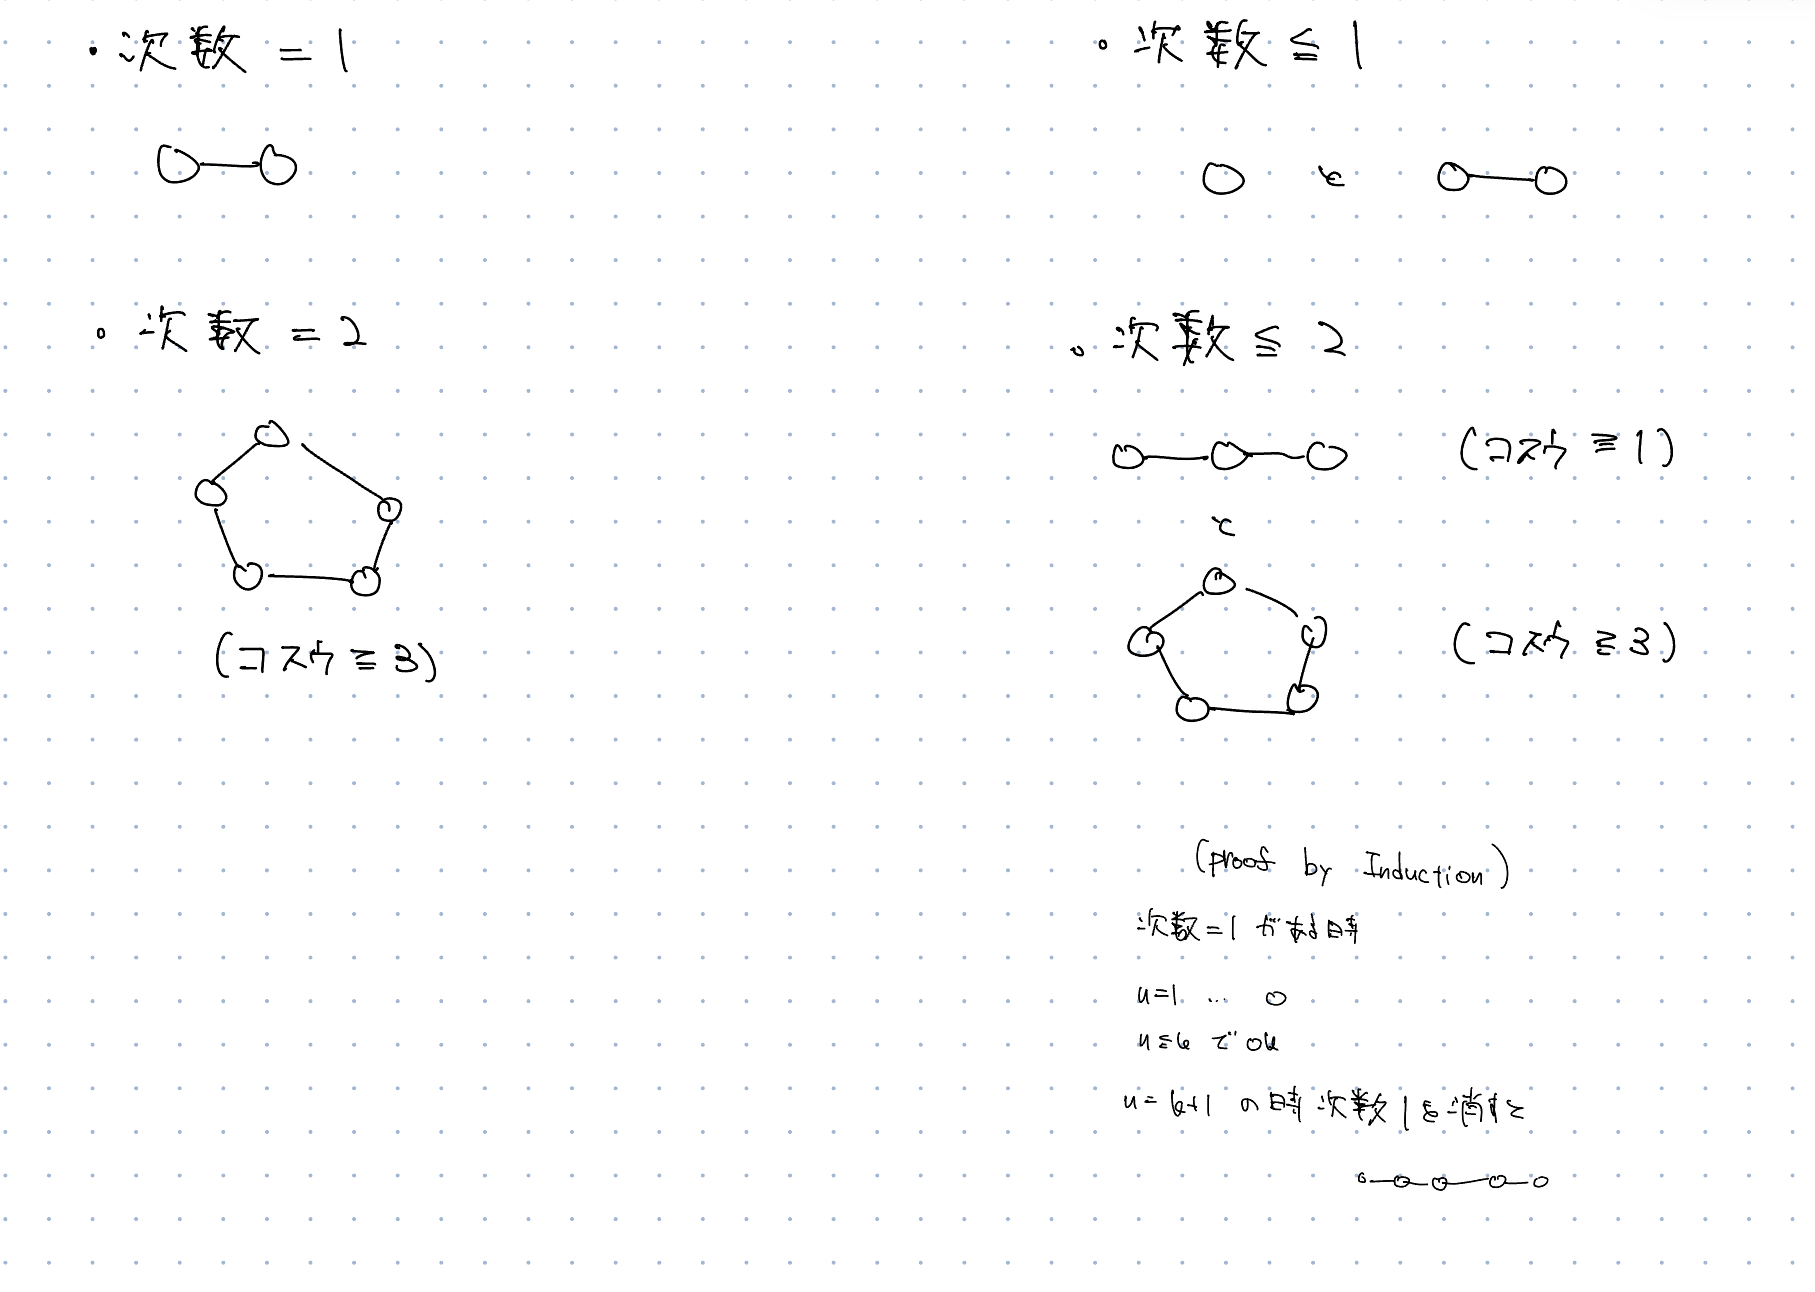 ・次数 = 1
・次数 ≦ 1
と
・次数 = 2
(コスウ ≧ 3)
・次数 ≦ 2
(コスウ ≧ 1)
と
(コスウ ≧ 3)
(proof by Induction)
次数=1 がある時
n=1 …
n≦k でok
n=k+1 の時 次数1を消すと